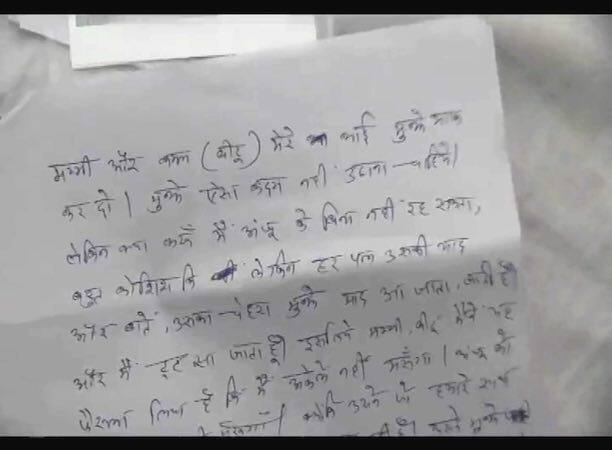 मम्मी और कमल (वीरू) मेरे भाई मुझे माफ
कर दो। मुझे ऐसा कदम नहीं उठाना चाहिये।
लेकिन क्या करूँ मैं अंजू के बिना नहीं रह सकता,
बहुत कोशिश कि लेकिन हर पल उसकी याद
और बातें, उसका चेहरा मुझे याद आ जाता, जाती है।
और मैं टूट सा जाता हूँ। इसलिये मम्मी, वीरू मैंने यह
फैसला लिया है कि मैं अकेले नहीं मरूँगा। अंजू को
उसने हमारे साथ
मुझे